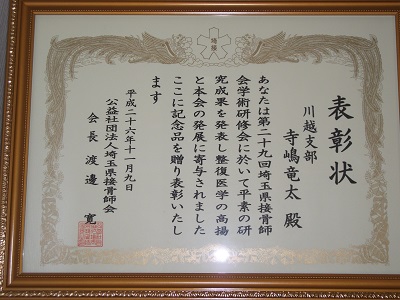 埼接
表彰状
川越支部
寺嶋竜太殿
あなたは第二十九回埼玉県接骨師
会学術研修会に於いて平素の研
究成果を発表し整復医学の高揚
と本会の発展に寄与されました
ここに記念品を贈り表彰いたし
ます
平成二十六年十一月九日
公益社団法人埼玉県接骨師会
会長 渡邊 寛